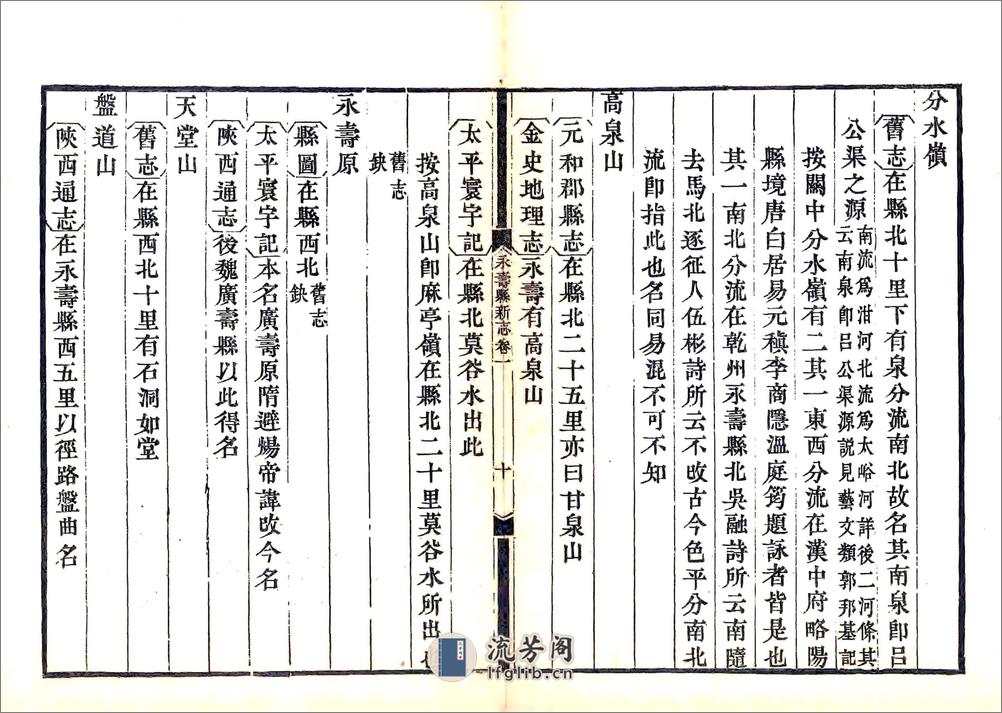 分水嶺
舊志在縣北十里下有泉分流南北故名其南泉卽呂
公渠之源南流爲泔河北流爲太峪河詳後二河條其
云南泉卽呂公渠源説見藝文類郭邦基記
按關中分水嶺有二其一東西分流在漢中府略陽
縣境唐白居易元稹李商隱溫庭筠題詠者皆是也
其一南北分流在乾州永壽縣北吳融詩所云南隨
去馬北逐征人伍彬詩所云不攺古今色平分南北
流卽指此也名同易混不可不知
高泉山
元和郡縣志在縣北二十五里亦曰甘泉山
金史地理志永壽有高泉山
永壽縣新志卷一
十
太平寰宇記在縣北莫谷水出此
按高泉山卽麻亭嶺在縣北二十里莫谷水所出
舊志
缺
永壽原
縣圖在縣西北舊志
缺
太平寰宇記本名廣壽原隋避煬帝諱攺今名
陜西通志後魏廣壽縣以此得名
天堂山
舊志在縣西北十里有石洞如堂
盤道山
陜西通志在永壽縣西五里以徑路盤曲名
流芳阁
lfglib.cn